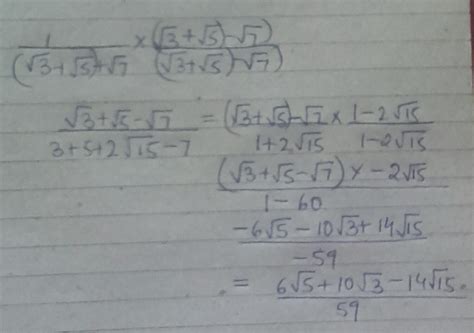 1/((√3+√5)+√7) × ((√3+√5)-√7)/((√3+√5)-√7)
(√3+√5-√7)/(3+5+2√15-7) = ((√3+√5)-√7)/(1+2√15) × (1-2√15)/(1-2√15)
((√3+√5-√7) × -2√15)/(1-60)
(-6√5-10√3+14√15)/(-59)
= (6√5+10√3-14√15)/59.